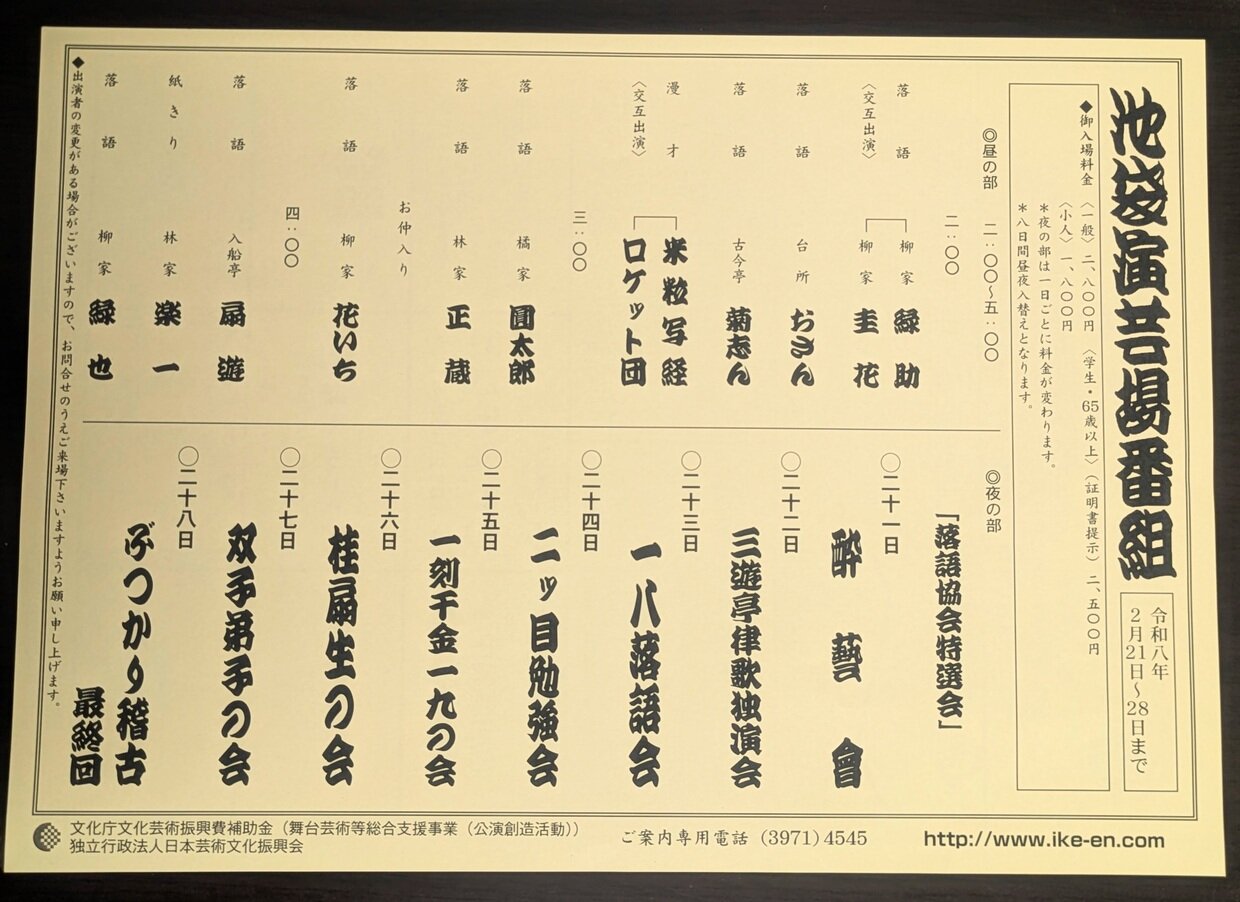 池袋演芸場番組
令和八年
2月21日～28日まで
◆御入場料金
〈一般〉二、八〇〇円 〈学生・65歳以上〉(証明書提示) 二、五〇〇円
〈小人〉一、八〇〇円
*夜の部は一日ごとに料金が変わります。
*八日間昼夜入替えとなります。
◎昼の部 二:〇〇～五:〇〇
二:〇〇
落語 柳家 緑助
〈交互出演〉 柳家 圭花
落語 台所 おさん
落語 古今亭 菊志ん
漫才 米粒写経
〈交互出演〉 ロケット団
三:〇〇
落語 橘家 圓太郎
落語 林家 正蔵
お仲入り
落語 柳家 花いち
四:〇〇
落語 入船亭 扇遊
紙きり 林家 楽一
落語 柳家 緑也
◎夜の部
「落語協会特選会」
〇二十一日
酔藝會
〇二十二日
三遊亭律歌独演会
〇二十三日
一八落語会
〇二十四日
二ッ目勉強会
〇二十五日
一刻千金一九の会
〇二十六日
桂扇生の会
〇二十七日
双子弟子の会
〇二十八日
ぶつかり稽古
最終回
◆出演者の変更がある場合がございますので、お問合せのうえご来場下さいますようお願い申し上げます。
文化庁文化芸術振興費補助金(舞台芸術等総合支援事業(公演創造活動))
独立行政法人日本芸術文化振興会
ご案内専用電話 (3971)4545
http://www.ike-en.com